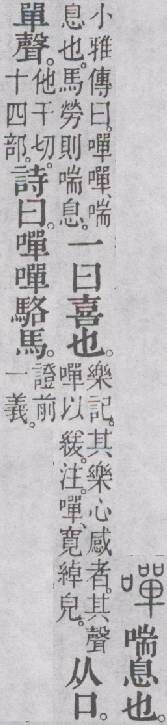 嘽 喘息也。
小雅傳曰。嘽嘽、喘
息也。馬勞則喘息。
一曰喜也。
樂記。其樂心感者。其聲
嘽以緩。注。嘽、寬綽皃。
从口。
單聲。
他干切。
十四部。
詩曰。嘽嘽駱馬。
證前
一義。